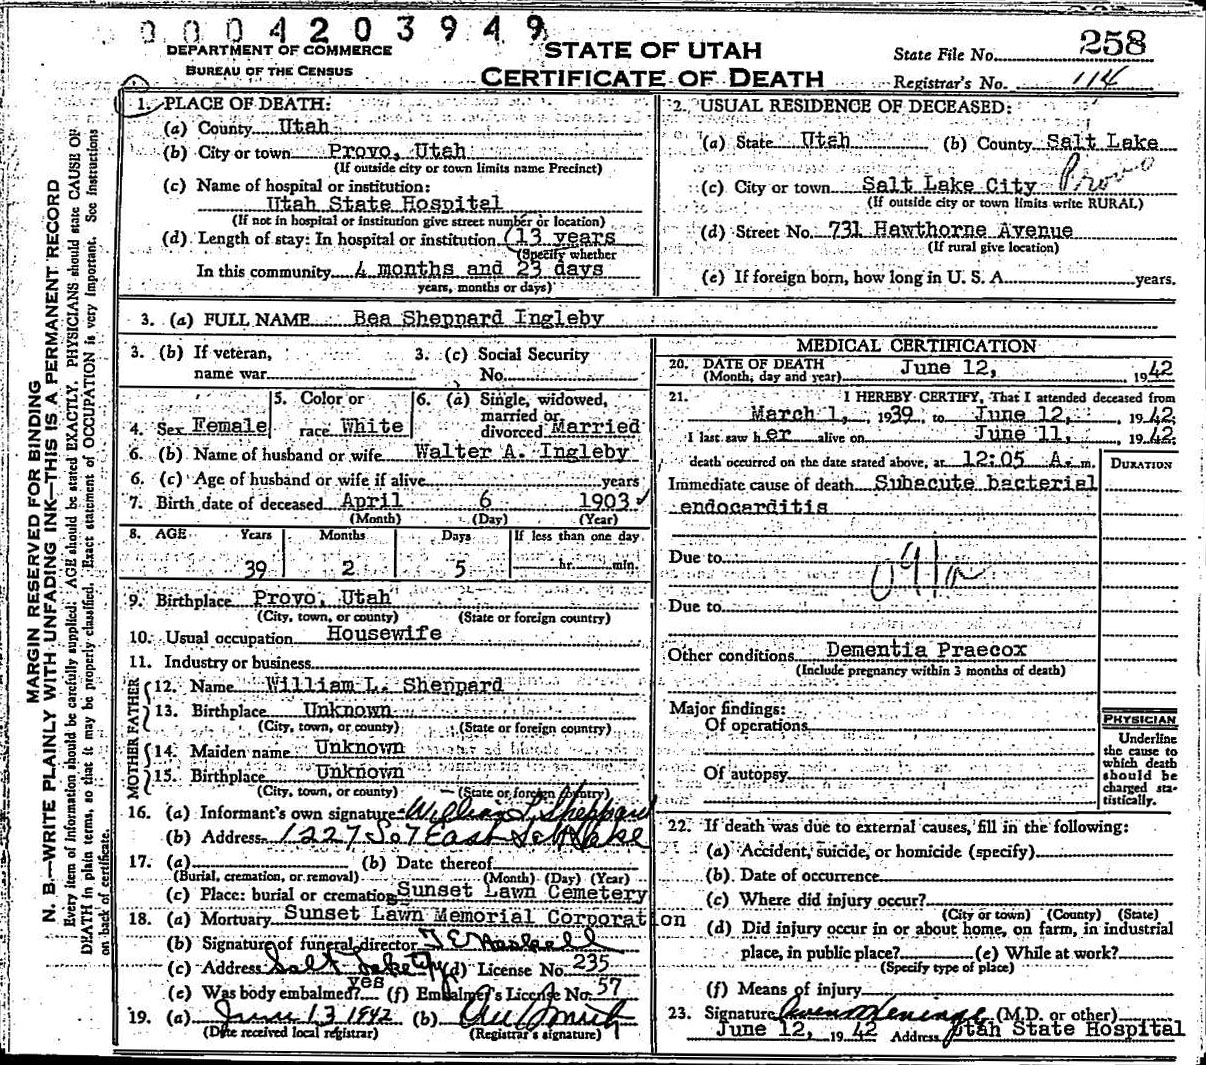 0004203949
DEPARTMENT OF COMMERCE
BUREAU OF THE CENSUS
STATE OF UTAH
CERTIFICATE OF DEATH
State File No. 258
Registrar's No. 114
MARGIN RESERVED FOR BINDING
N. B.—WRITE PLAINLY WITH UNFADING INK—THIS IS A PERMANENT RECORD
Every item of information should be carefully supplied. AGE should be stated EXACTLY. PHYSICIANS should state CAUSE OF
DEATH in plain terms, so that it may be properly classified. Exact statement of OCCUPATION is very important. See instructions
on back of certificate.
1. PLACE OF DEATH:
(a) County Utah
(b) City or town Provo, Utah
(If outside city or town limits name Precinct)
(c) Name of hospital or institution:
Utah State Hospital
(If not in hospital or institution give street number or location)
(d) Length of stay: In hospital or institution (13 years
(Specify whether
In this community 4 months and 23 days
years, months or days)
2. USUAL RESIDENCE OF DECEASED:
(a) State Utah (b) County Salt Lake
(c) City or town Salt Lake City Provo
(If outside city or town limits write RURAL)
(d) Street No. 731 Hawthorne Avenue
(If rural give location)
(e) If foreign born, how long in U. S. A. years.
3. (a) FULL NAME Bea Sheppard Ingleby
3. (b) If veteran, name war
3. (c) Social Security No.
4. Sex Female
5. Color or race White
6. (a) Single, widowed, married or divorced Married
6. (b) Name of husband or wife Walter A. Ingleby
6. (c) Age of husband or wife if alive years
7. Birth date of deceased April 6 1903
(Month) (Day) (Year)
8. AGE Years Months Days If less than one day
39 2 5 hr. min.
9. Birthplace Provo, Utah
(City, town, or county) (State or foreign country)
10. Usual occupation Housewife
11. Industry or business
FATHER
12. Name William L. Sheppard
13. Birthplace Unknown
(City, town, or county) (State or foreign country)
MOTHER
14. Maiden name Unknown
15. Birthplace Unknown
(City, town, or county) (State or foreign country)
16. (a) Informant's own signature William L. Sheppard
(b) Address 1227 So 7 East Salt Lake
17. (a) (b) Date thereof
(Burial, cremation, or removal) (Month) (Day) (Year)
(c) Place: burial or cremation Sunset Lawn Cemetery
18. (a) Mortuary Sunset Lawn Memorial Corporation
(b) Signature of funeral director
(c) Address Salt Lake City (d) License No. 235
(e) Was body embalmed? yes (f) Embalmer's License No. 57
19. (a) June 13 1942 (b)
(Date received local registrar) (Registrar's signature)
MEDICAL CERTIFICATION
20. DATE OF DEATH June 12, 1942
(Month, day and year)
21. I HEREBY CERTIFY, That I attended deceased from
March 1, 1939 to June 12, 1942
I last saw her alive on June 11, 1942
death occurred on the date stated above, at 12:05 A. m.
DURATION
Immediate cause of death Subacute bacterial
endocarditis
Due to
Due to
Other conditions Dementia Praecox
(Include pregnancy within 3 months of death)
Major findings:
Of operations
Of autopsy
PHYSICIAN
Underline
the cause to
which death
should be
charged sta-
tistically.
22. If death was due to external causes, fill in the following:
(a) Accident, suicide, or homicide (specify)
(b) Date of occurrence
(c) Where did injury occur?
(City or town) (County) (State)
(d) Did injury occur in or about home, on farm, in industrial
place, in public place? (e) While at work?
(Specify type of place)
(f) Means of injury
23. Signature (M.D. or other)
June 12, 1942 Address Utah State Hospital